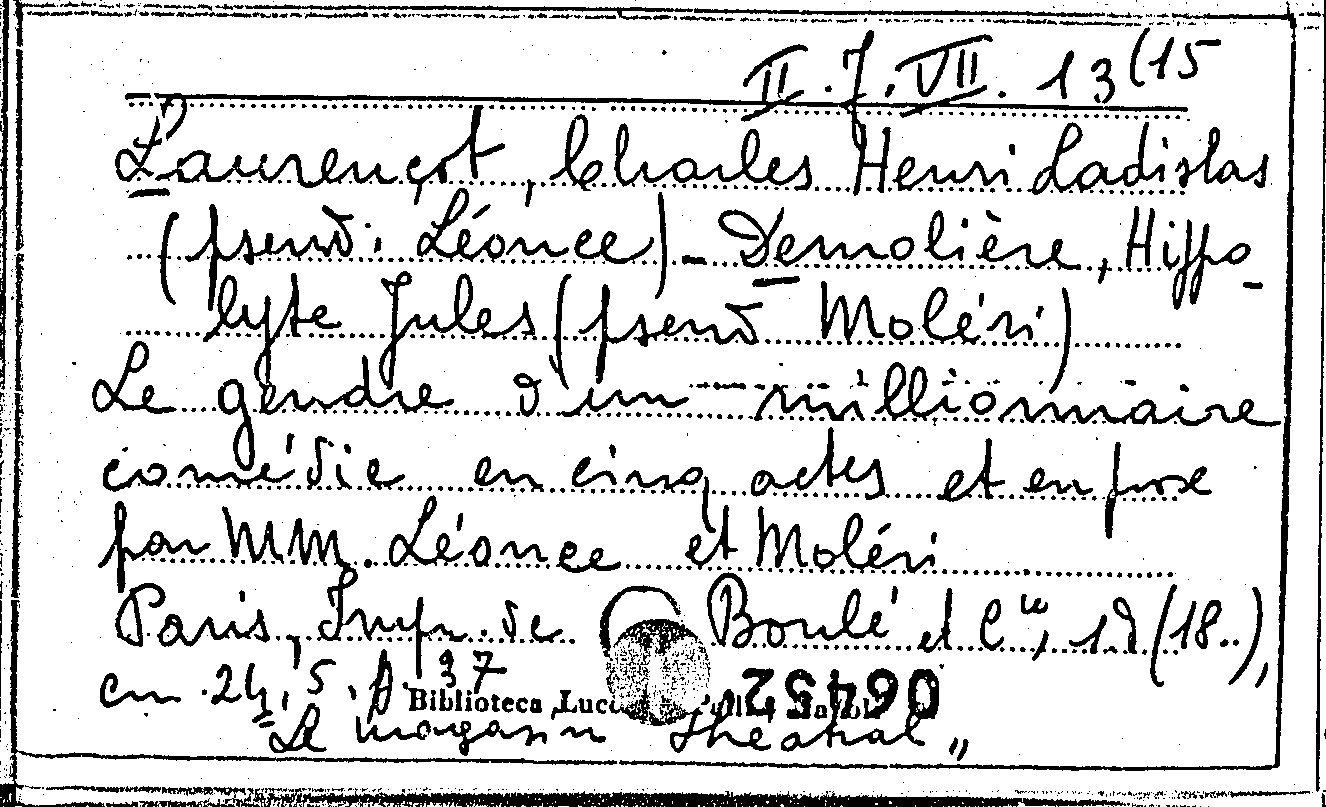 II.7.VII.13(15
Laurençot, Charles Henri Ladislas
(pseud. Léonce) - Demolière, Hippo-
lyte Jules (pseud Moléri)
Le gendre d'un millionnaire
comédie en cinq actes et en prose
par MM. Léonce et Moléri
Paris, Imp. de Boulé et Cie, 1d (18..),
cm. 24, 5. p. 37
Biblioteca
06452
"Le magasin théatral"